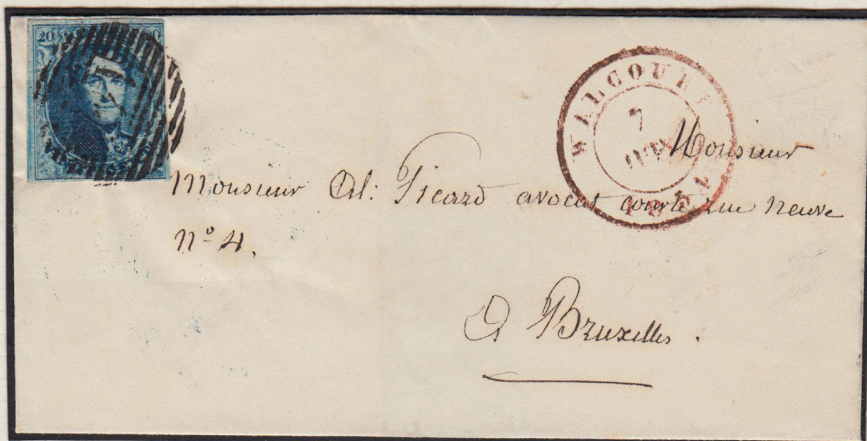 20
WALCOURT
7
Monsieur
Monsieur Al: Picard avocat courte rue neuve
N° 4.
A Bruxelles.